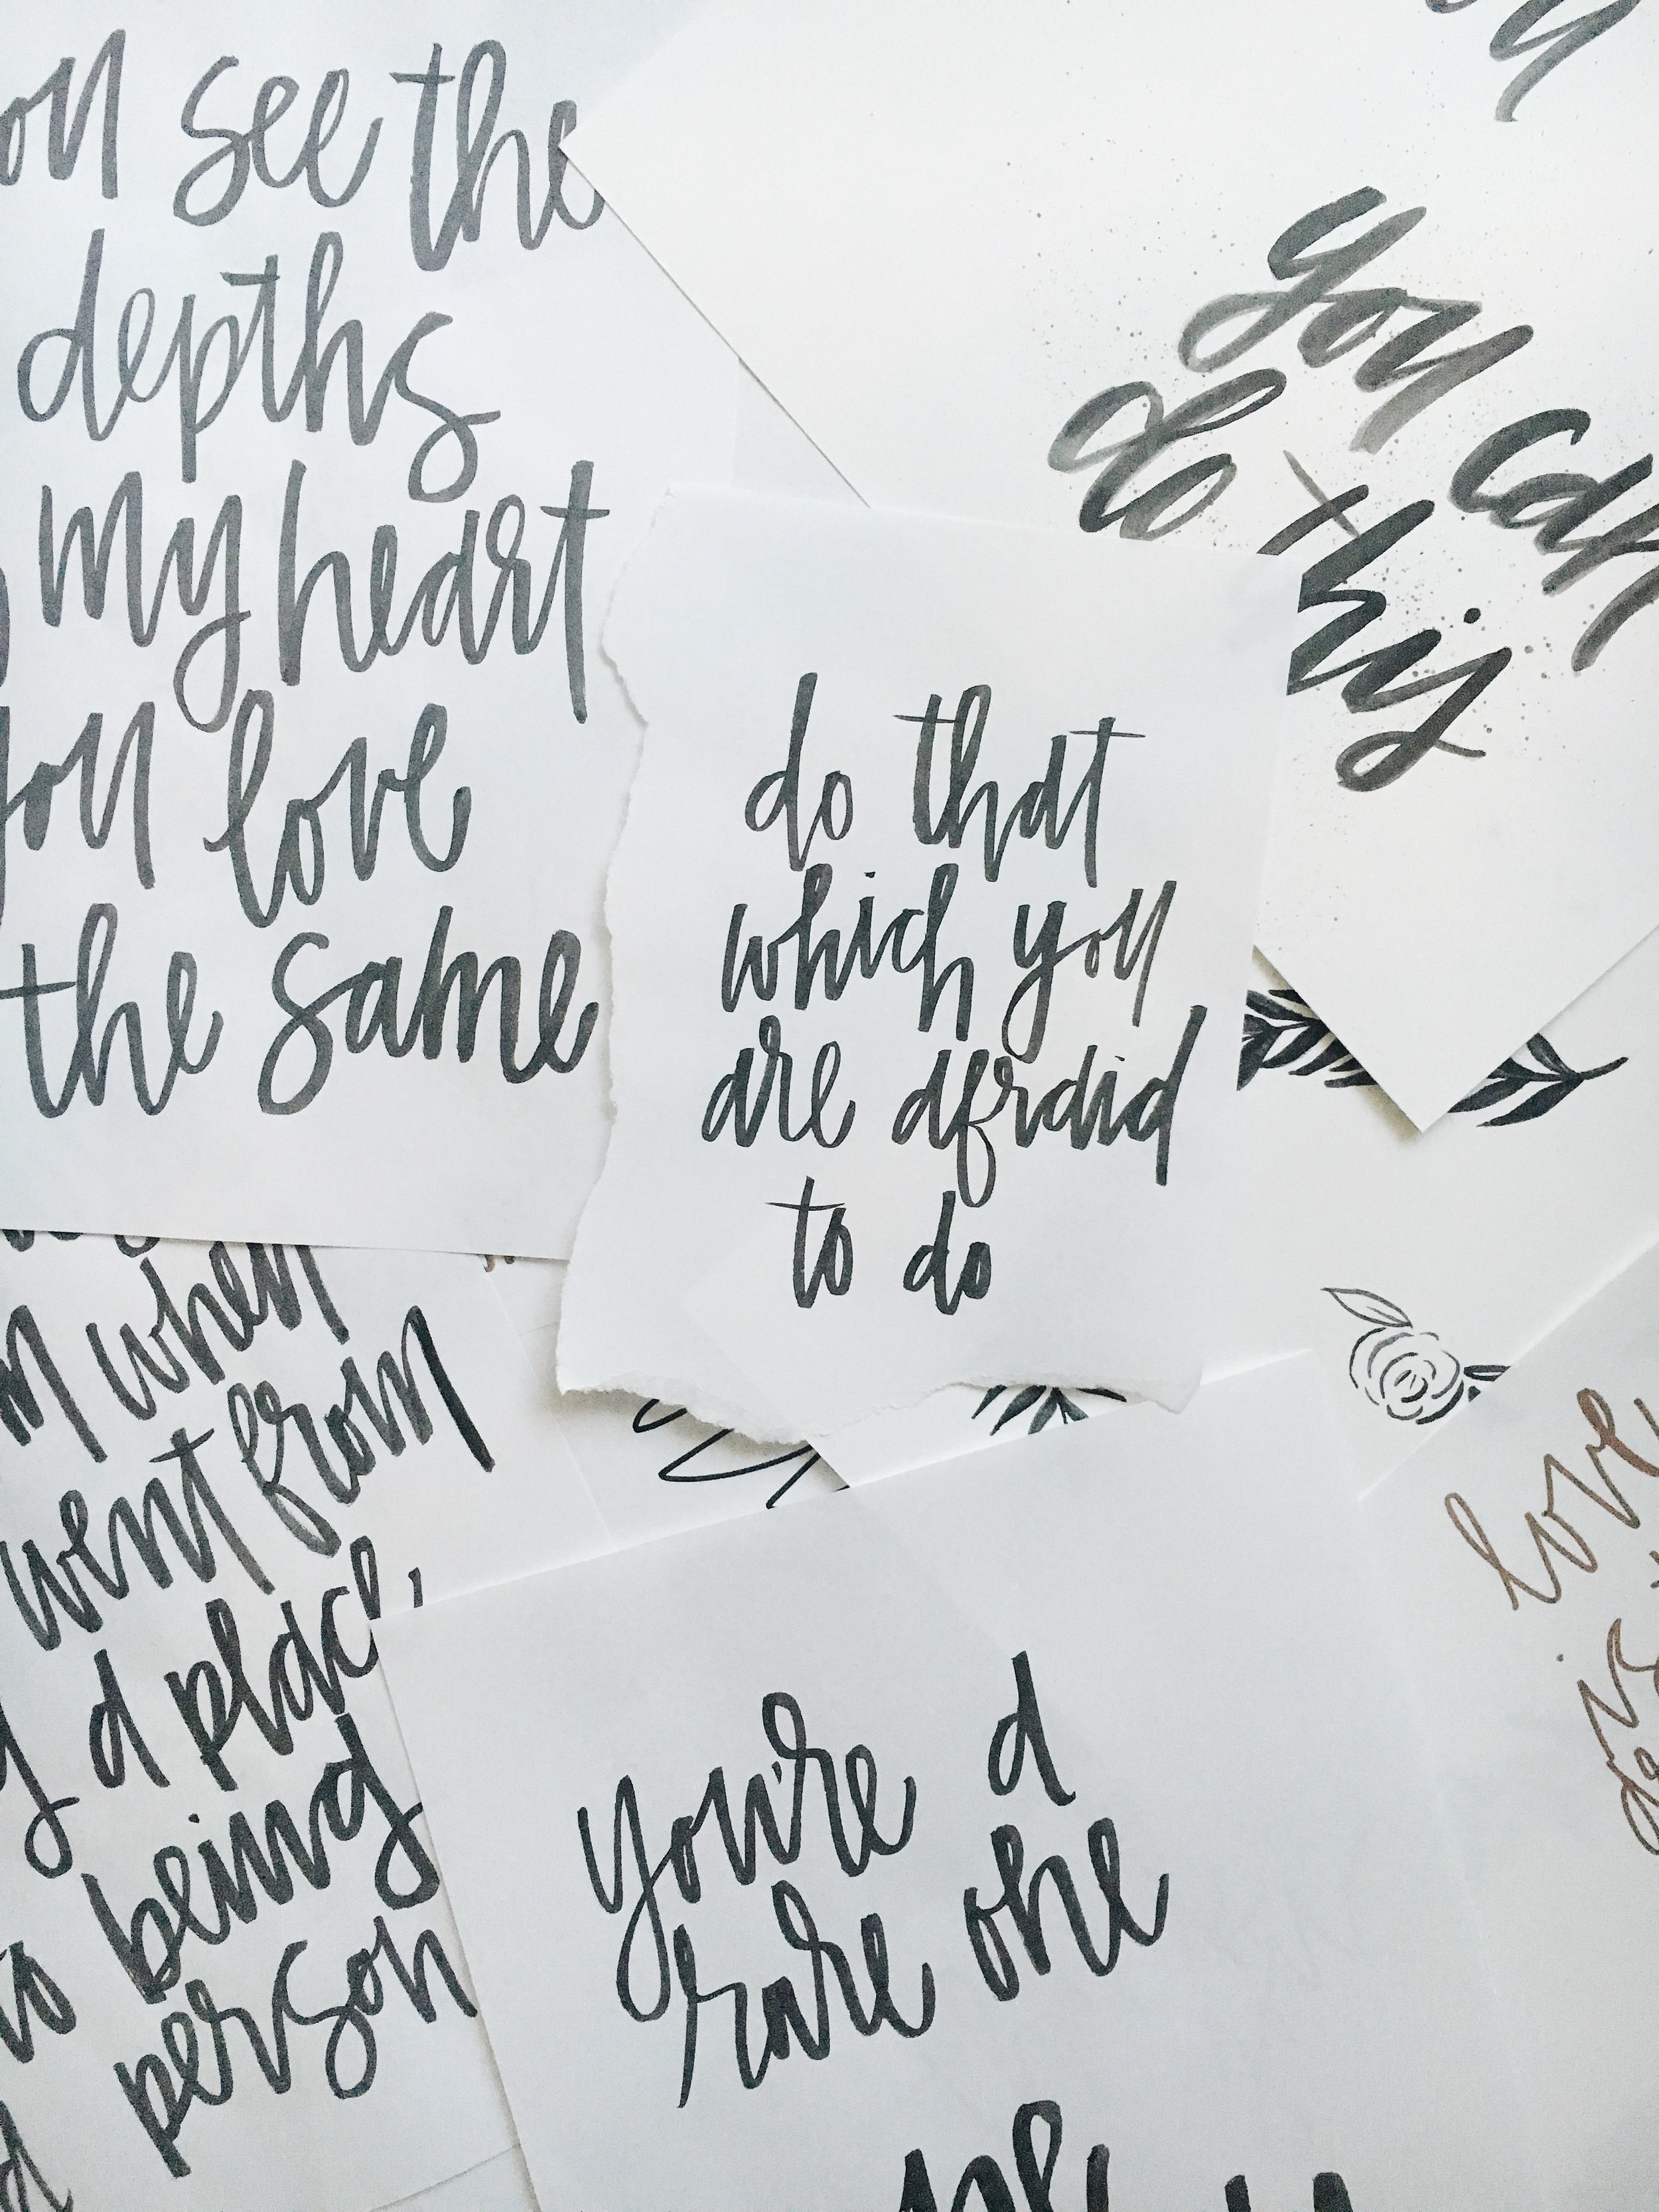 see the
depths
my heart
you love
the same
you can
do this
do that
which you
are afraid
to do
when
went from
a place,
to being
person
you're a
rare one
love
is